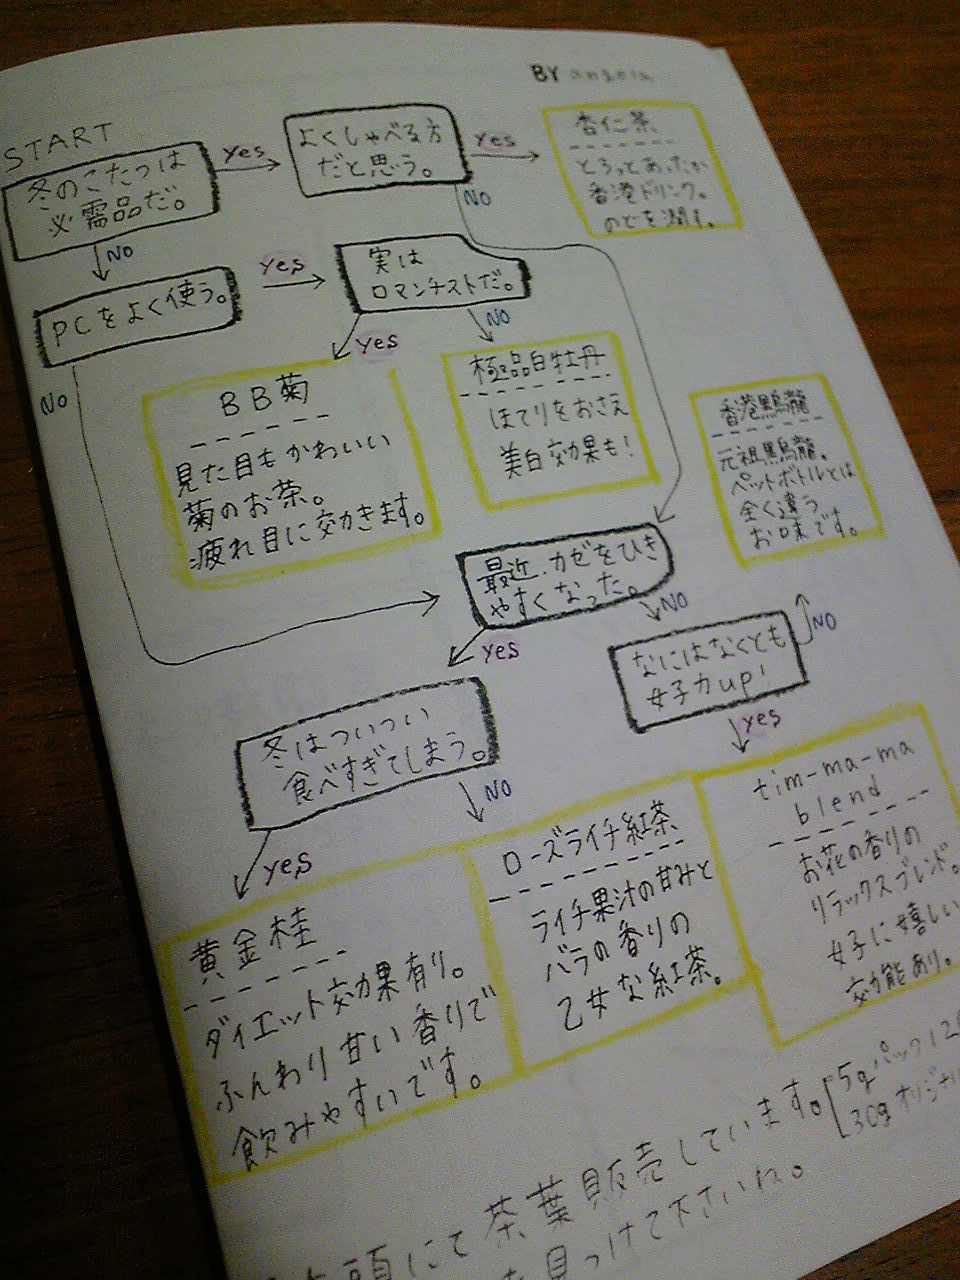 BY angela
START
冬のこたつは
必需品だ。
yes
よくしゃべる方
だと思う。
yes
杏仁茶
とろっとあったか
香港ドリンク。
のどを潤す。
NO
NO
PCをよく使う。
yes
実は
ロマンチストだ。
yes
NO
NO
BB菊
見た目もかわいい
菊のお茶。
疲れ目に効きます。
極品白牡丹
ほてりをおさえ
美白効果も!
香港黒烏龍
元祖黒烏龍。
ペットボトルとは
全く違う
お味です。
最近、カゼをひき
やすくなった。
yes
NO
なにはなくとも
女子力up!
NO
yes
冬はついつい
食べすぎてしまう。
yes
NO
黄金桂
ダイエット効果有り。
ふんわり甘い香りで
飲みやすいです。
ローズライチ紅茶
ライチ果汁の甘みと
バラの香りの
乙女な紅茶。
tim-ma-ma
blend
お花の香りの
リラックスブレンド。
女子に嬉しい
効能あり。
頭にて茶葉販売しています。
5gパック
30gオリジナル
見つけて下さいね。